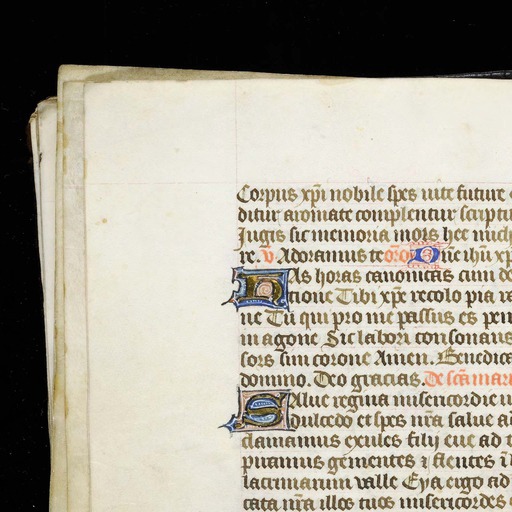 Corpus xpi nobile spes uite future
ditur aromate complentur scriptu
Iugis sit memoria mors hec mich
re. v. Adoramus te oro Dne ihu xp
Has horas canonicas cum de
tione Tibi xpe recolo pia ra
ne Tu qui pro me passus es
in agone Sic labori consonans
sors sim corone Amen. Benedica
domino. Deo gracias. De sca mari
Salue regina misericordie
dulcedo et spes nra salue a
clamamus exules filij eue ad t
piramus gementes ⁊ flentes i
lacrimarum valle Eya ergo ad
cata nra illos tuos misericordes